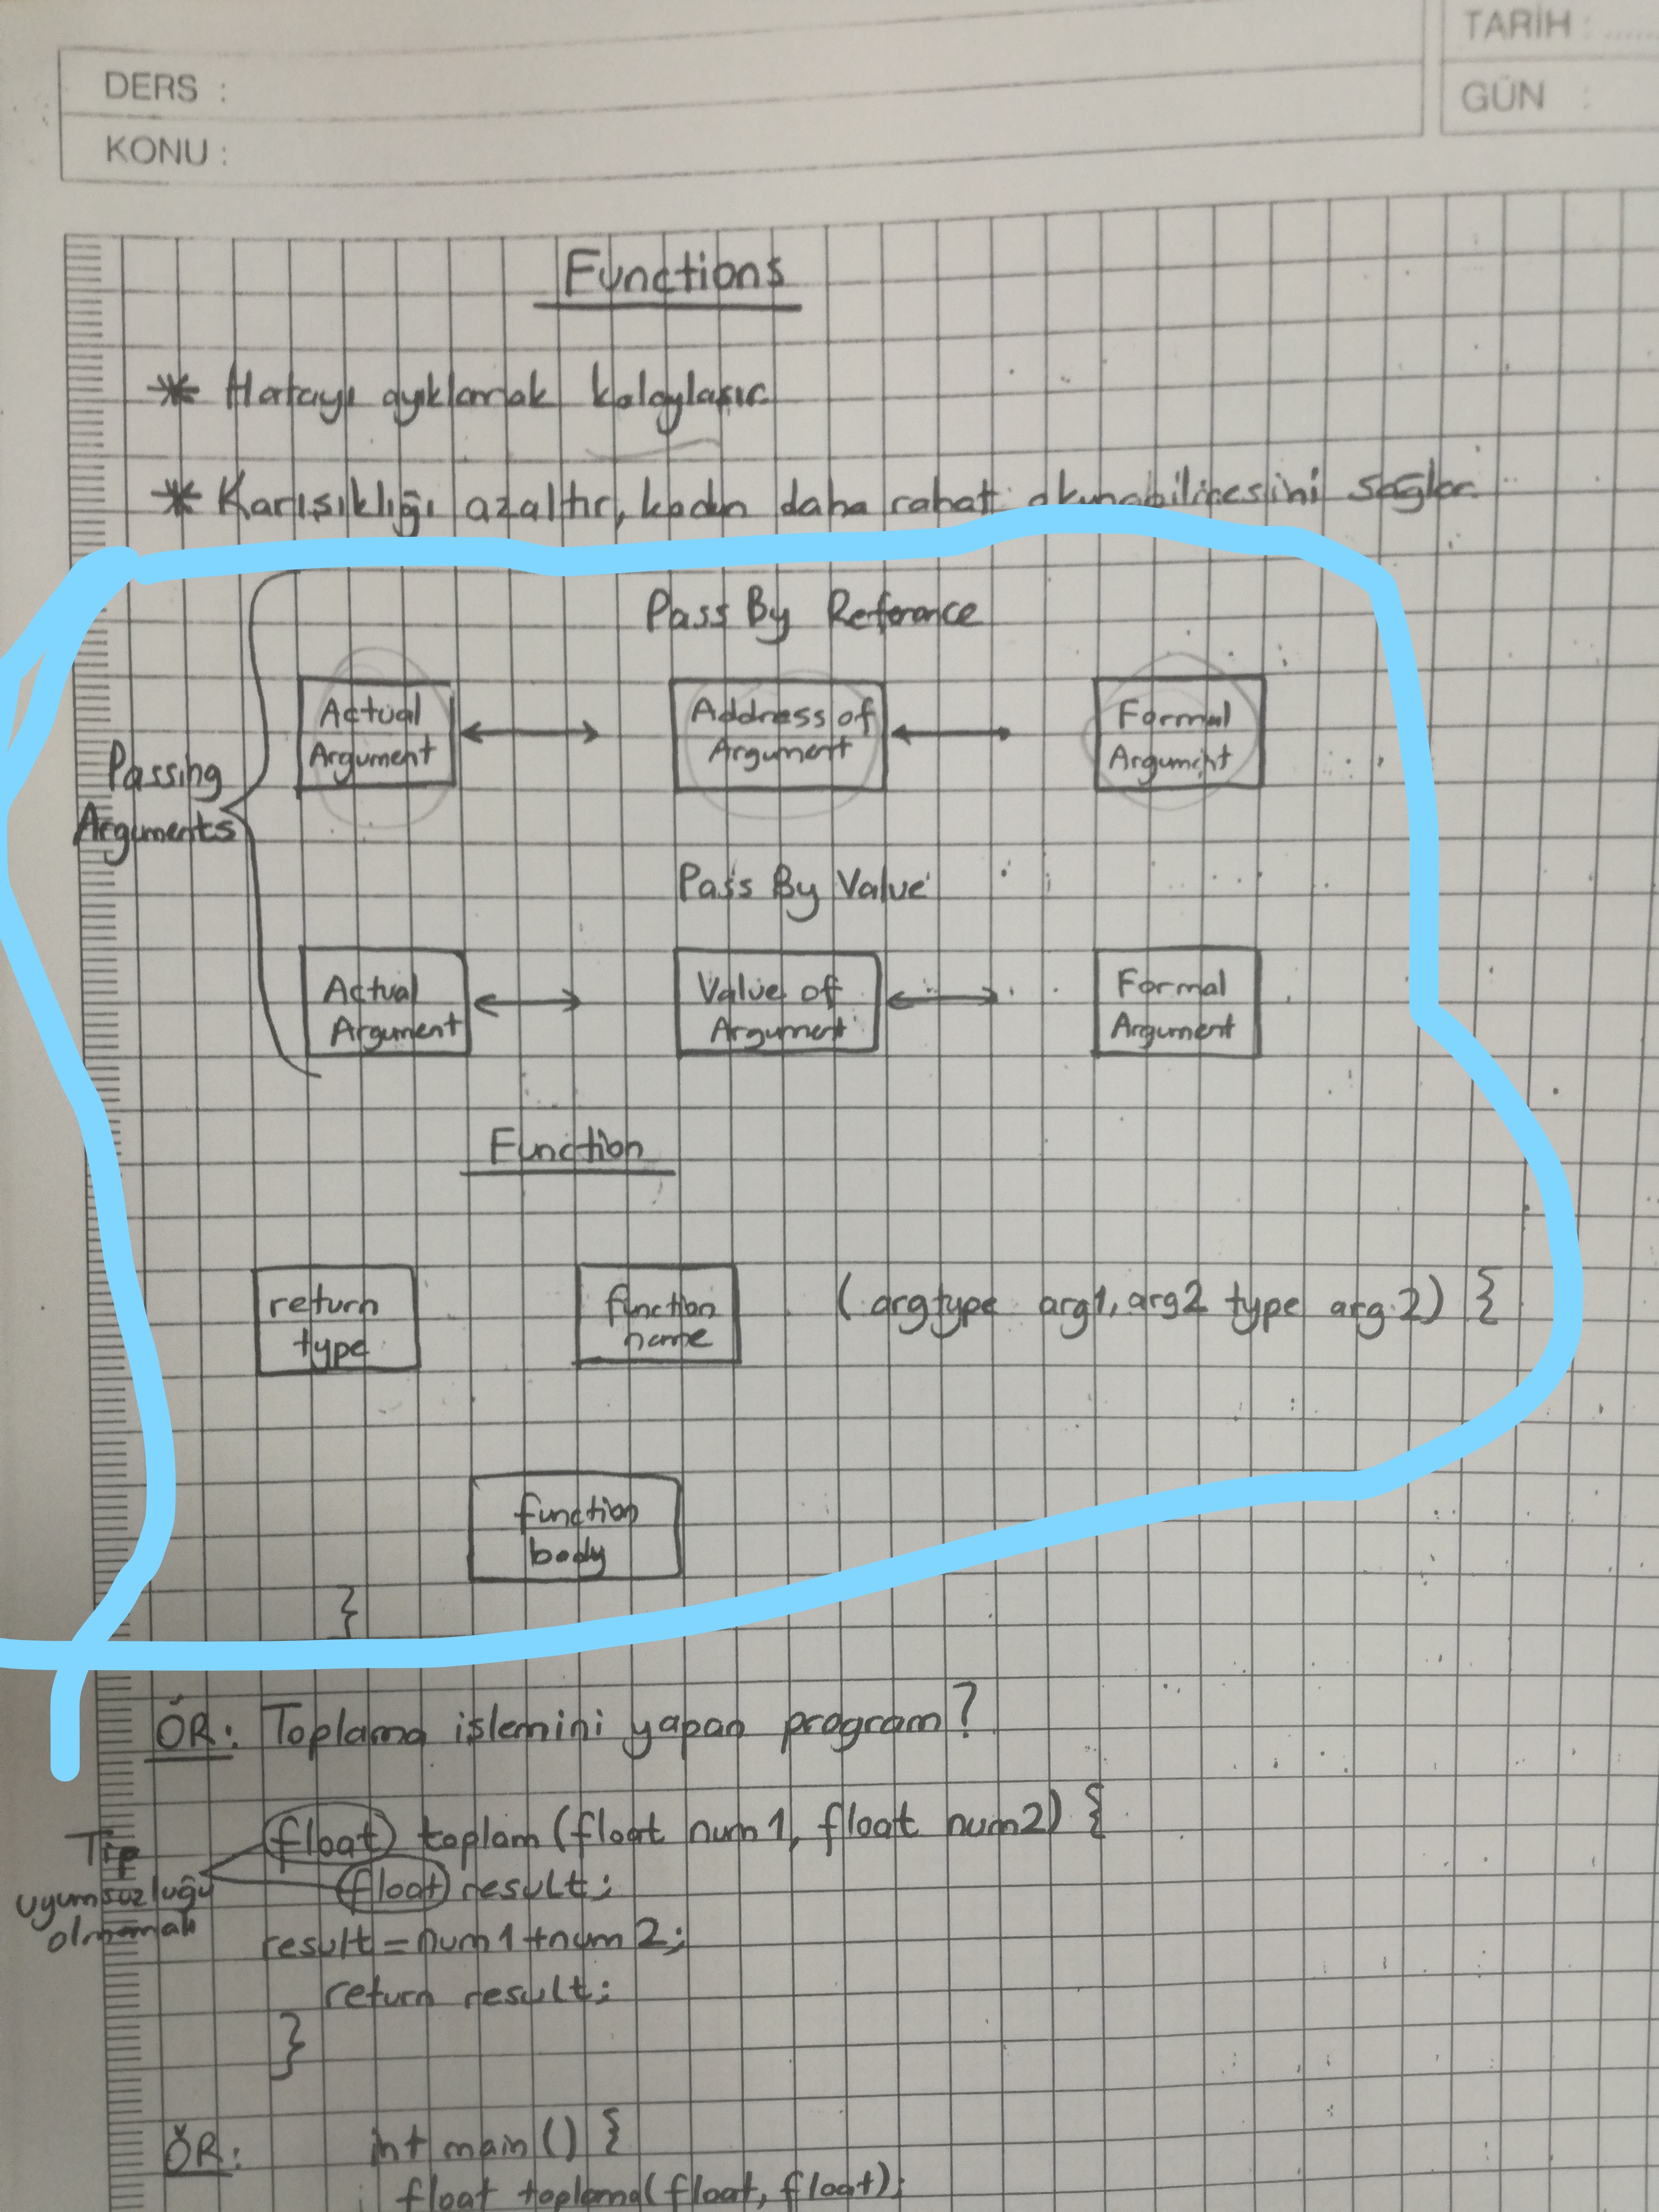 DERS :
KONU :
TARİH :
GÜN :
Functions
* Hatayı ayıklamak kolaylaşır.
* Karışıklığı azaltır, kodun daha rahat okunabilmesini sağlar.
Passing
Arguments
Pass By Reference
Actual
Argument
Address of
Argument
Formal
Argument
Pass By Value
Actual
Argument
Value of
Argument
Formal
Argument
Function
return
type
function
name
(argtype arg1, arg2 type arg 2) {
function
body
}
ÖR: Toplama işlemini yapan program?
Tip
uyumsuzluğu
olmamalı
float toplam (float num1, float num2) {
float result;
result = num1+num2;
return result;
}
ÖR: int main () {
float toplama(float, float);